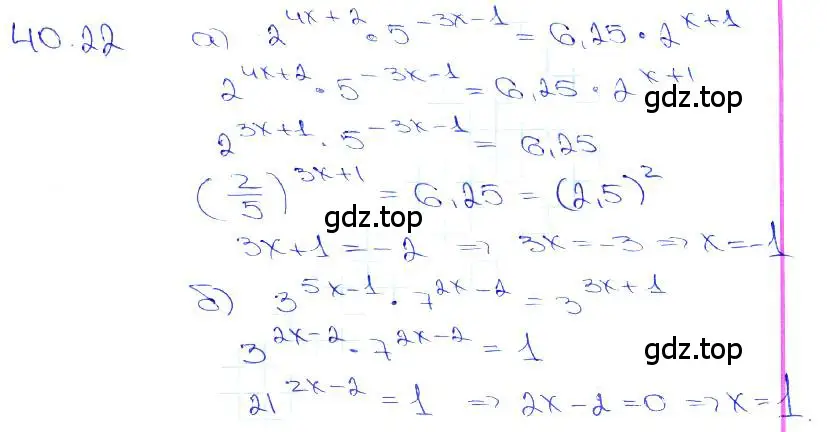 40.22 а) 2^{4x+2} · 5^{-3x-1} = 6,25 · 2^{x+1}
2^{4x+2} · 5^{-3x-1} = 6,25 · 2^{x+1}
gdz.top
2^{3x+1} · 5^{-3x-1} = 6,25
(2/5)^{3x+1} = 6,25 = (2,5)^2
gdz.top
3x+1 = -2 => 3x = -3 => x = -1
б) 3^{5x-1} · 7^{2x-2} = 3^{3x+1}
3^{2x-2} · 7^{2x-2} = 1
gdz.top
21^{2x-2} = 1 => 2x-2=0 => x = 1.